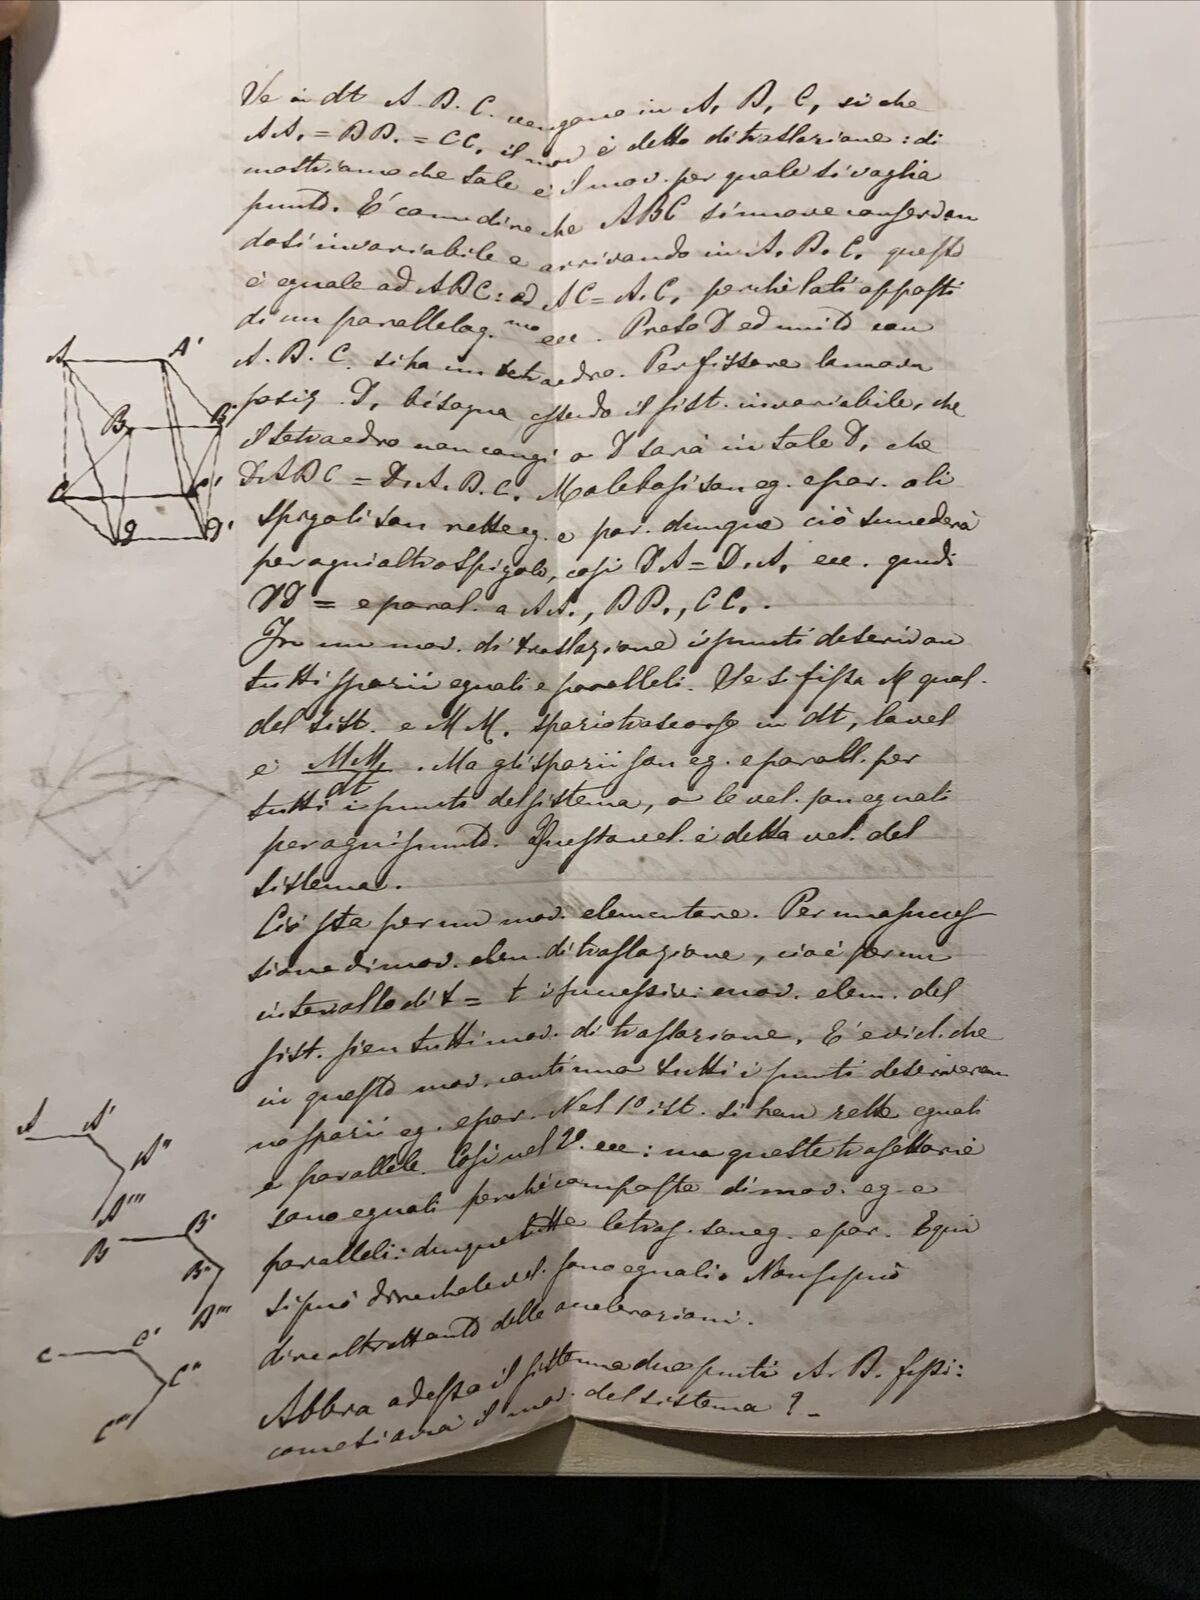 Se in dt A. B. C. vengono in A, B, C, si che
AA, = BB, = CC, il mov è detto di traslazione: di
mostriamo che tale è il mov. per quale si voglia
punto. È come dire che ABC si muove conservan
dosi invariabile e arrivando in A, B, C, questo
è eguale ad ABC: ad AC = A,C, perchè lati opposti
di un parallelog.mo ecc. Preso D ed unito con
A. B. C. si ha un tetraedro. Per fissare la nuova
posiz. D, bisogna essendo il sist. invariabile, che
il tetraedro non cangi o D sarà in tale D, che
DABC = D,A,B,C, Ma le basi son eg. e par. gli
spigoli son rette eg. e par. dunque ciò succederà
per ogni altro spigolo, così DA = D,A, ecc. quindi
DD = e paral. a AA,, BB,, CC,.
In un mov. di traslazione i punti descrivon
tutti spazii eguali e paralleli. Se si fissa M qual.
del sist. e MM, spazio trascorso in dt, la vel
è MM,/dt. Ma gli spazii son eg. e parall. per
tutti i punti del sistema, o le vel. son eguali
per ogni punto. Questa vel. è detta vel. del
sistema.
Ciò sta per un mov. elementare. Per una succes
sione di mov. elem. di traslazione, cioè per un
intervallo di t = t i successivi mov. elem. del
sist. sien tutti mov. di traslazione. È evid. che
in questo mov. continuo tutti i punti descriveran
no spazii eg. e par. Nel 1° ist. si han rette eguali
e parallele. Così nel 2°. ecc: ma queste trajettorie
sono eguali perchè composte di mov. eg. e
paralleli: dunque tutte le traj. son eg. e par. E qui
si può dire che le vel. sono eguali. Non si può
dire altrettanto delle accelerazioni.
Abbia adesso il sistema due punti A. B. fissi:
come si avrà il mov. del sistema?
A A'
B B'
C C'
D D'
A A'
A''
A'''
B B'
B''
B'''
C C'
C''
C'''